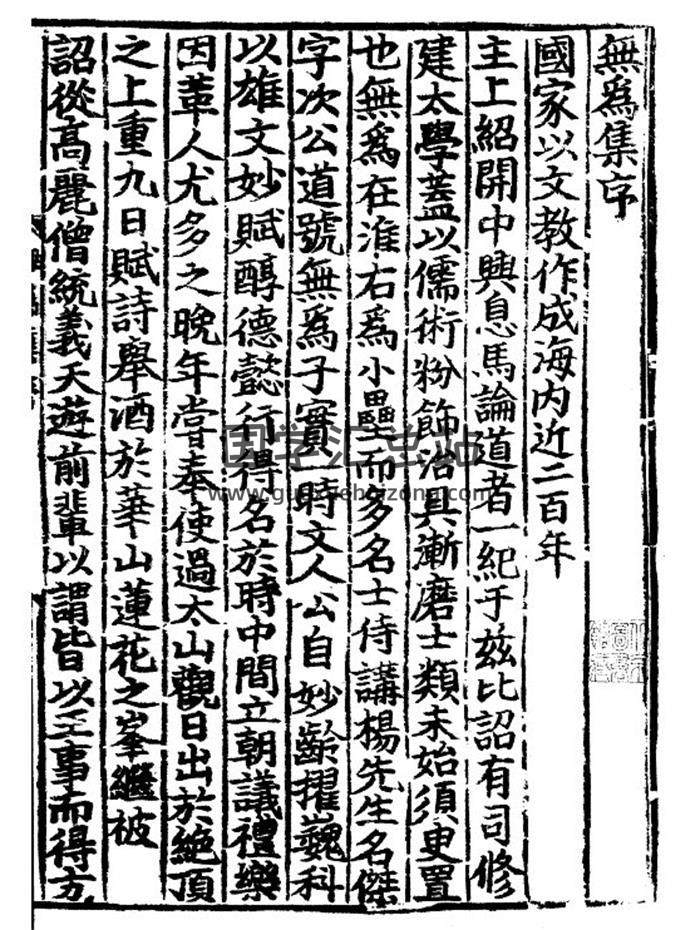 無爲集序
國家以文教作成海内近二百年
主上紹開中興息馬論道者一紀于兹比詔有司修
建太學蓋以儒術粉飾治具漸磨士類未始須臾置
也無爲在淮右爲小壘而多名士侍講楊先生名傑
字次公道號無爲子實一時文人公自妙齡擢巍科
以雄文妙賦醇德懿行得名於時中間立朝議禮樂
因革人尤多之晚年嘗奉使過太山觀日出於絶頂
之上重九日賦詩舉酒於華山蓮花之峯繼被
詔從高麗僧統義天遊前輩以謂皆以王事而得方
国学汇总站
www.guoxuehuizong.com